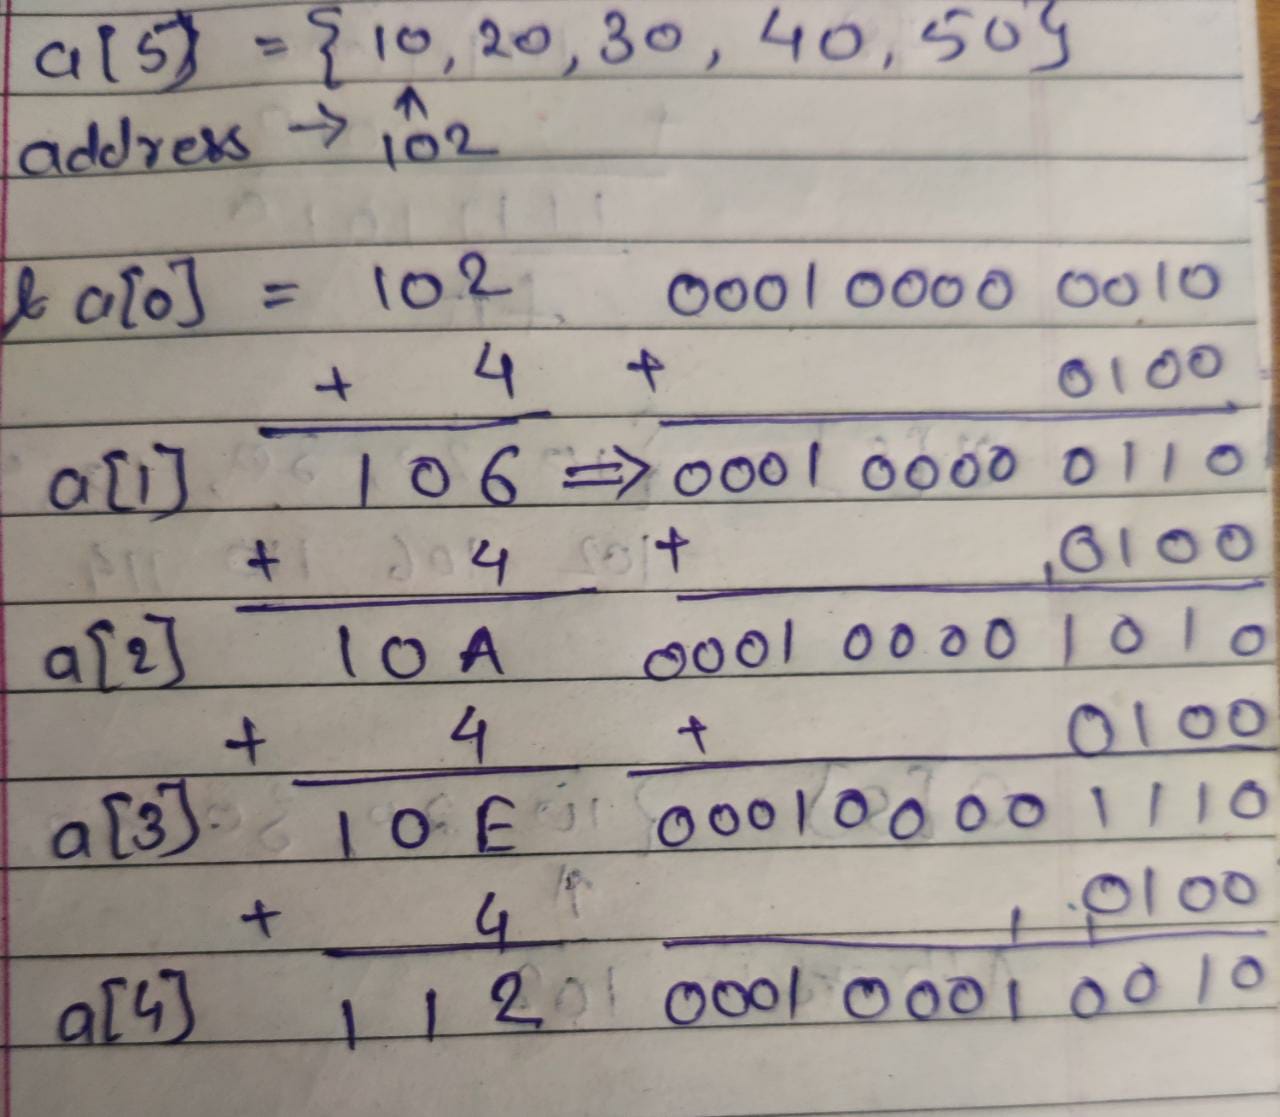 a[5] = {10, 20, 30, 40, 50}
↑
address → 102
& a[0] = 102 0001 0000 0010
+ 4 + 0100
a[1] 106 ⇒ 0001 0000 0110
+ 4 + 0100
a[2] 10A 0001 0000 1010
+ 4 + 0100
a[3] 10E 0001 0000 1110
+ 4 0100
a[4] 112 0001 0001 0010